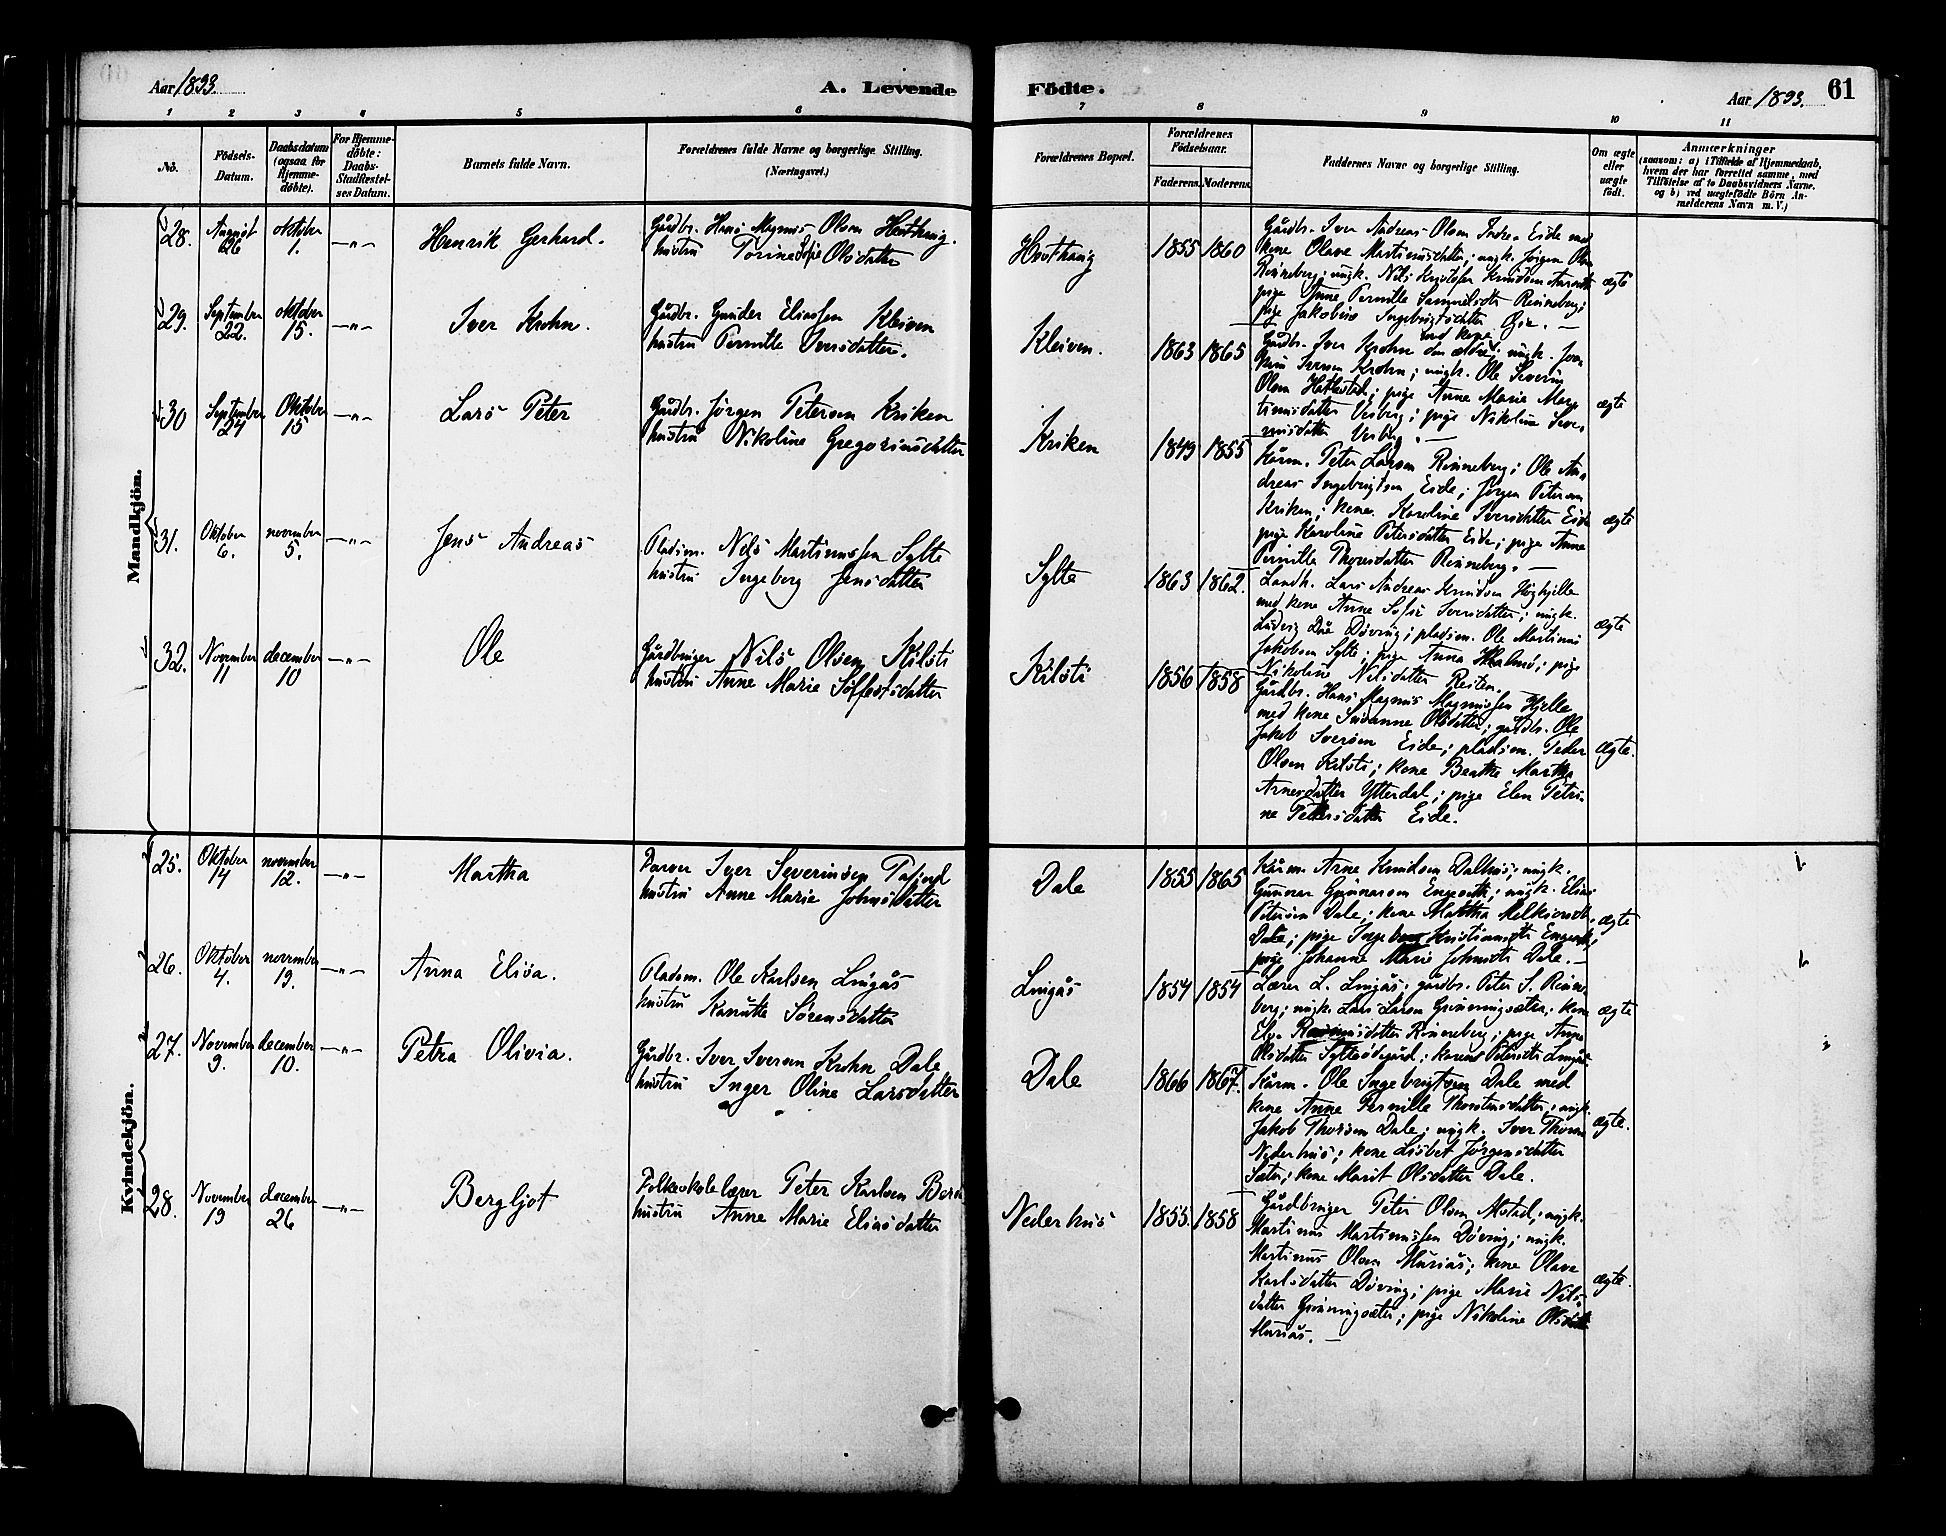 Aar 1893.
A. Levende Födte.
Aar 1893.
61
1 2 3 4 5 6 7 8 9 10 11
No.
Födsels-Datum.
Daabsdatum (ogsaa for Hjemme-döbte).
For Hjemme-döbte: Daabs-Stadfæstel-ses Datum.
Barnets fulde Navn.
Forældrenes fulde Navne og borgerlige Stilling. (Næringsvei.)
Forældrenes Bopæl.
Forældrenes Födselsaar.
Faderens. Moderens.
Faddernes Navne og borgerlige Stilling.
Om ægte eller uægte födt.
Anmærkninger
(saasom: a) i Tilfælde af Hjemmedaab, hvem der har forrettet samme, med Tilföielse af to Daabsvidners Navne, og b) ved uægtefödte Börn Anmelderens Navn m. V.)
Mandkjön.
28. August 26 oktober 1. —"— Henrik Gerhard.
Gårdbr. Hans Magnus Olsen Hovthaug.
hustru Torine Olsdatter
Hovthaug 1855 1860
Gårdbr. Iver Andreas Olsen Indre Eide med
kone Olave Martinusdatter; ungk. Jörgen Olsen
Rinneberg; ungk. Nils Kristofer Knudsen
pige Anne Pernille Samuelsdtr Rinneberg;
pige Jakobine Ingebrigtsdatter —
ægte
29. September 22. oktober 15. —"— Iver Krohn.
Gårdbr. Gunder Eliassen Kleiven
hustru Pernille Iversdatter.
Kleiven. 1863 1865
Gårdbr. Iver Krohn den ældre med kone; ungk.
Iversen Krohn; ungk. Ole Severin
Olsen; pige Anne Marie Mar-
tinusdatter; pige Nikoline Seve-
rinusdatter —
ægte
30 September 24 Oktober 15 —"— Lars Peter
Gårdbr. Jörgen Petersen Kriken
hustru Nikoline Gregoriusdatter
Kriken 1849 1855
Kårm. Peter Larsen Rinneberg; Ole An-
dreas Ingebrigtsen Eide; Jörgen Petersen
Kriken; kone Karoline Iversdatter Eide
pige Karoline Petersdatter Eide; pige Anne
Pernille Thoresdatter Rinneberg. —
ægte
31. Oktober 6. november 5. —"— Jens Andreas
Pladsm. Nils Martinussen Sylte
hustru Ingeborg Jensdatter
Sylte 1863 1862.
Landh. Lars Andreas Knudsen
med kone Anne Sofie Iversdatter; ungk.
Ludvig Döving; pladsm. Ole Martinus
Jakobsen Sylte; pige Anna; pige
Nikoline Nilsdatter Reiten.
ægte
32. November 11 december 10 —"— Ole
Gårdbruger Nils Olsen Kilsti
hustru Anne Marie Soffestsdatter
Kilsti 1856 1858
Gårdbr. Hans Magnus Magnussen Hjelle
med kone Susanne Olsdatter; gårdbr. Ole
Jakob Iversen Eide; pladsm. Peder
Olsen Kilsti; kone Beathe Martha
Arnesdatter Ytterdal; pige Elen Petri-
ne Pettersdatter Eide.
ægte.
Kvindekjön.
25. Oktober 14 november 12. —"— Martha
Iver Severinsen Tafjord
hustru Anne Marie Johnsdatter
Dale 1855 1865
Kårm. Arne Knudsen Dalhus; ungk.
Gunnar Gunnarsen Engeseth; ungk. Elias
Petersen Dale; kone Martha
Dale; pige Ingeborg
pige Johanne Marie Johnsdtr Dale. —
ægte
26. Oktober 4. november 19. —"— Anna Elisa.
Pladsm. Ole Karlsen Lingås
hustru Kanutte Sörensdatter
Lingås 1854 1854
Lærer L. Lingås; gårdbr. Peter S. Rinne-
berg; ungk. Lars Larsen Grönningsæter; kone
Rasmusdatter Rinneberg; pige Anne
Olsdatter Sylteödegård; Petersdtr Lingås
ægte
27. November 9. december 10. —"— Petra Olivia.
Gårdbr. Iver Iversen Krohn Dale
hustru Inger Oline Larsdatter
Dale 1866 1867.
Kårm. Ole Ingebrigtsen Dale med
kone Anne Pernille Thorstensdatter; ungk.
Jakob Thorsen Dale; ungk. Iver Thorsen
Nederhus; kone Lisbet Jörgensdatter
Sæter; kone Marit Olsdatter Dale.
ægte.
28. November 19 december 26 —"— Bergljot
Folkeskolelærer Peter Karlsen Berg
hustru Anne Marie Eliasdatter
Nederhus 1855. 1858
Gårdbruger Peter Olsen; ungk.
Martinus Martinussen Döving; ungk.
Martinus Olsen Muriås; kone Olave
Karlsdatter Döving; pige Marie Nils-
datter Grönningsæter; pige Nikoline Olsdatter
Muriås. —
ægte.